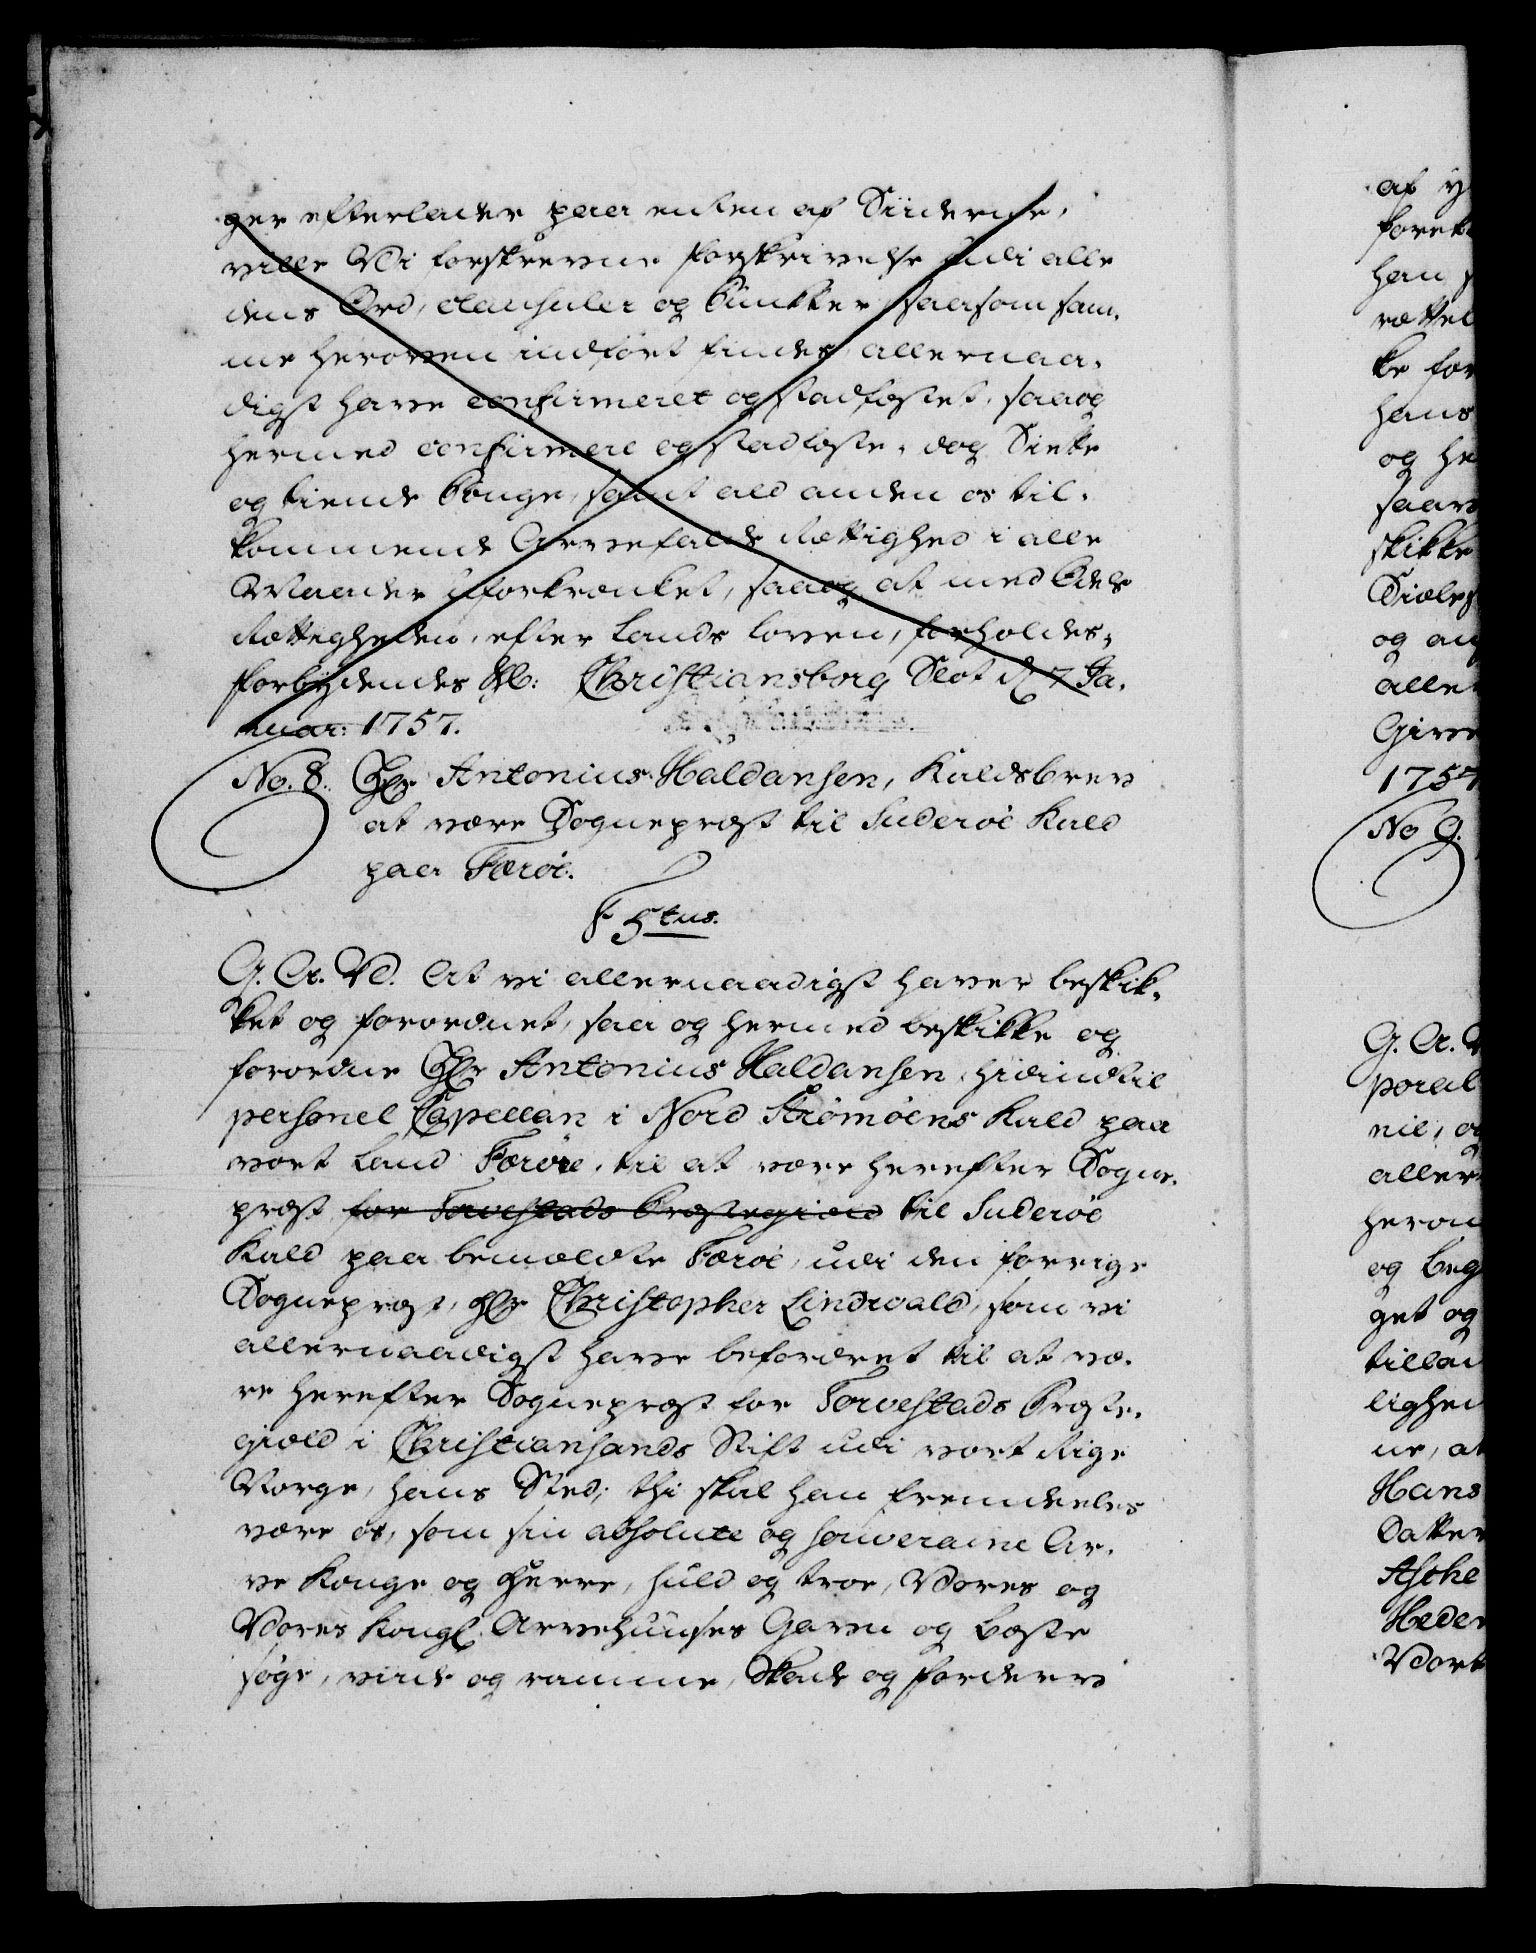 ger efterlader paa enten af Siiderne,
ville Vi forskrevne Forskrivelse udi alle
dens Ord, clausuler og Puncter saasom sam-
me heroven indført findes, allernaa-
digst have confirmeret og stadfæstet, saa og
hermed confirmere og stadfæste, dog Siette
og tiende Penge, samt ald anden os til-
kommende Arvefalds Rettighed i alle
Maader uforkrænket, saa og at med Odels
Rettigheden, efter Lands Loven, forholdes,
Forbydendes &c: Christiansborg Slot d. 7 Ja-
nuar: 1757.
No. 8. Hr Antonius Haldansen, Kaldsbrev
at være Sognepræst til Suderøe Kald
paa Færøe.
F 5tus.
G. A. V. At vi allernaadigst haver beskik-
ket og forordnet, saa og hermed beskikke og
forordne Hr Antonius Haldansen, hidindtil
personel Capellan i Nord Strømøens Kald paa
vort Land Færøe, til at være herefter Sogne-
præst for Torvestads Præstegield til Suderøe
Kald paa bemældte Færøe, udi den forrige
Sognepræst, Hr Christopher Lindvald, som vi
allernaadigst have befordret til at væ-
re herefter Sognepræst for Torvestads Præste-
gield i Christiansands Stift udi vort Rige
Norge, hans Sted; thi skal han fremdeeles
være os, som sin absolute og souveraine Ar-
ve Konge og Herre, huld og troe, Vores og
Vores Kongl. Arvehuuses Gavn og Beste
søge, viide og ramme, Skade og Forderv
af y
foret
han
rettel
ke for
hans
og he
saave
skikke
Siæles
og an
aller
Give
1757
No 9.
G. A. V
poral
nie, og
aller
herom
og beg
get og
tillad
lighed
ne, at
Hans
Datter
Hede
Vort